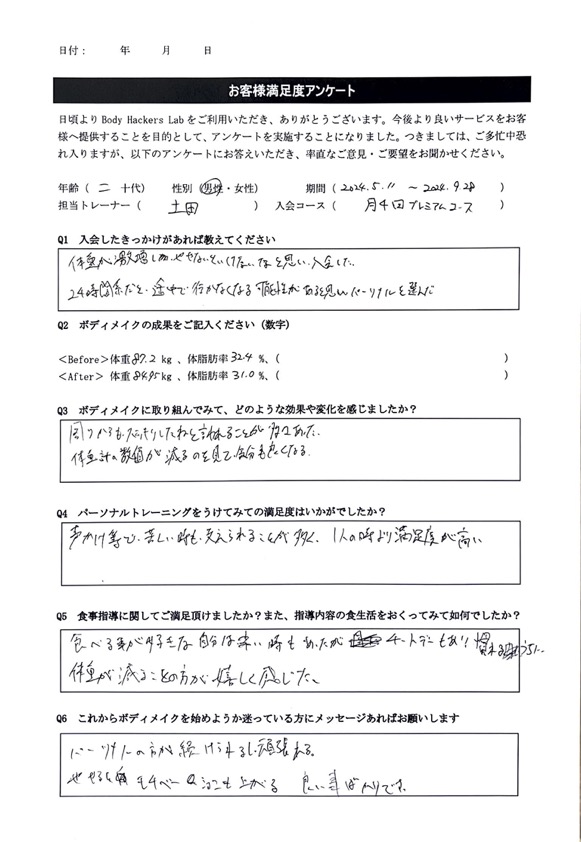 日付： 年 月 日
お客様満足度アンケート
日頃より Body Hackers Lab をご利用いただき、ありがとうございます。今後より良いサービスをお客
様へ提供することを目的として、アンケートを実施することになりました。つきましては、ご多忙中恐
れ入りますが、以下のアンケートにお答えいただき、率直なご意見・ご要望をお聞かせください。
年齢（ 二 十代） 性別（男性・女性） 期間（ 2024.5.11 ～ 2024.9.28 ）
担当トレーナー（ 土田 ） 入会コース（ 月4回プレミアムコース ）
Q1 入会したきっかけがあれば教えてください
体重が激増し、やせないといけないなと思い、入会した。
24時間系だと、途中で行かなくなる可能性があると思いパーソナルを選んだ
Q2 ボディメイクの成果をご記入ください（数字）
<Before>体重 87.2 kg 、体脂肪率 32.4 %、( )
<After> 体重 84.95 kg 、体脂肪率 31.0 %、( )
Q3 ボディメイクに取り組んでみて、どのような効果や変化を感じましたか？
周りからも、スッキリしたねと言われることが多々あった。
体重計の数値が減るのを見て、気分も良くなる。
Q4 パーソナルトレーニングをうけてみての満足度はいかがでしたか？
声かけ等で、苦しい時も、支えられることが多く、1人の時より満足度が高い
Q5 食事指導に関してご満足頂けましたか？また、指導内容の食生活をおくってみて如何でしたか？
食べる事が好きな自分は辛い時もあったが チートデイもあり 慣れる
体重が減ることの方が嬉しく感じた。
Q6 これからボディメイクを始めようか迷っている方にメッセージあればお願いします
パーソナルの方が続けられるし頑張れる。
やせると モチベーションも上がる 良い事ばかりです。